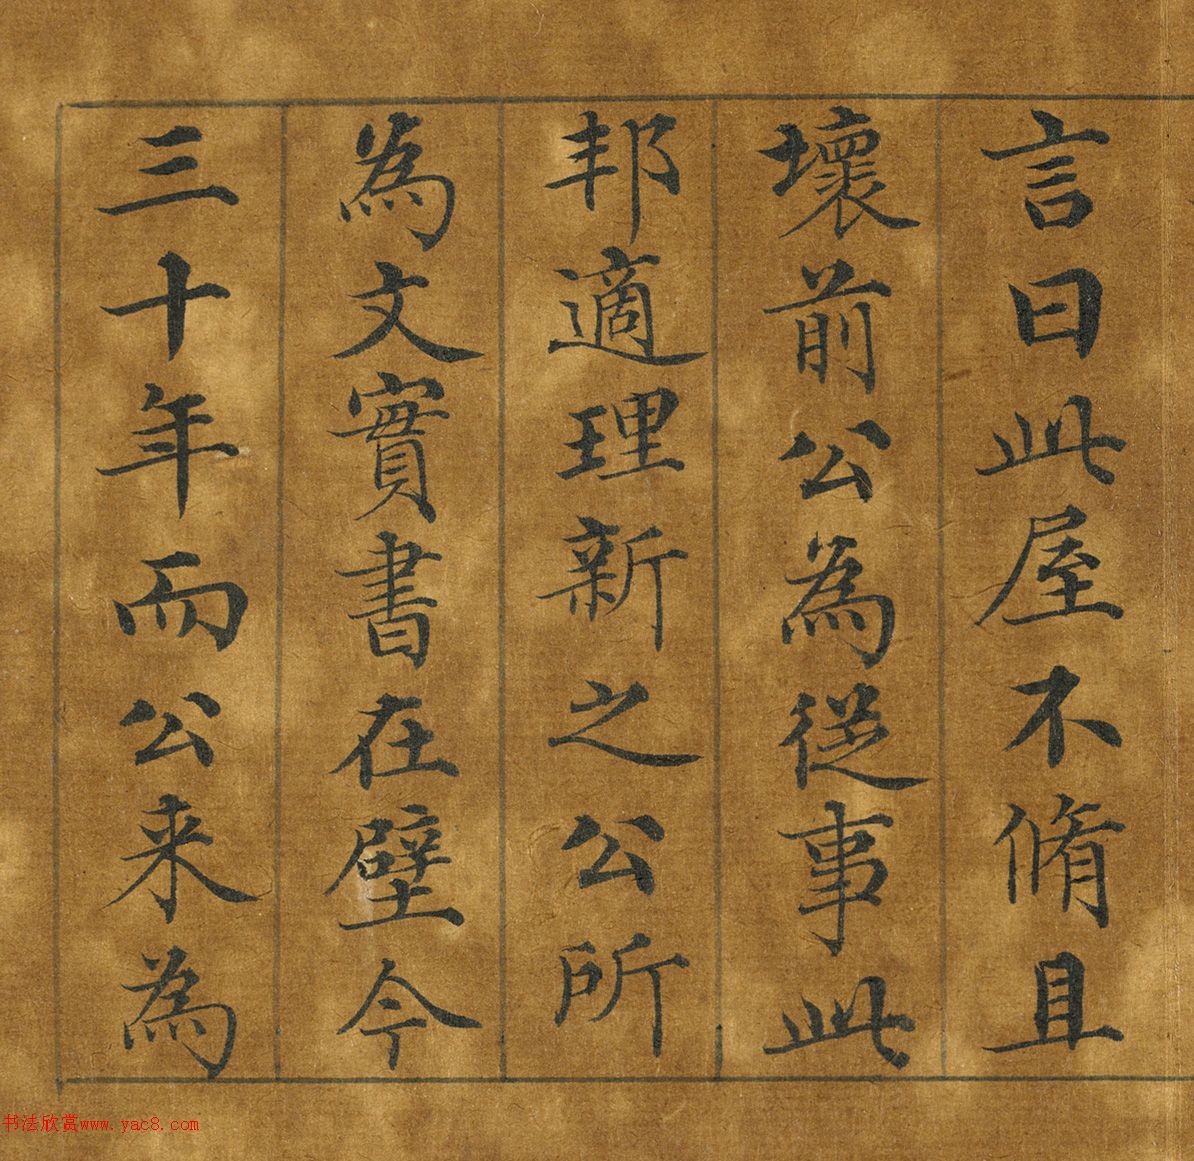 言曰此屋不脩且
壞前公為從事此
邦適理新之公所
為文實書在壁今
三十年而公来為
书法欣赏www.yac8.com